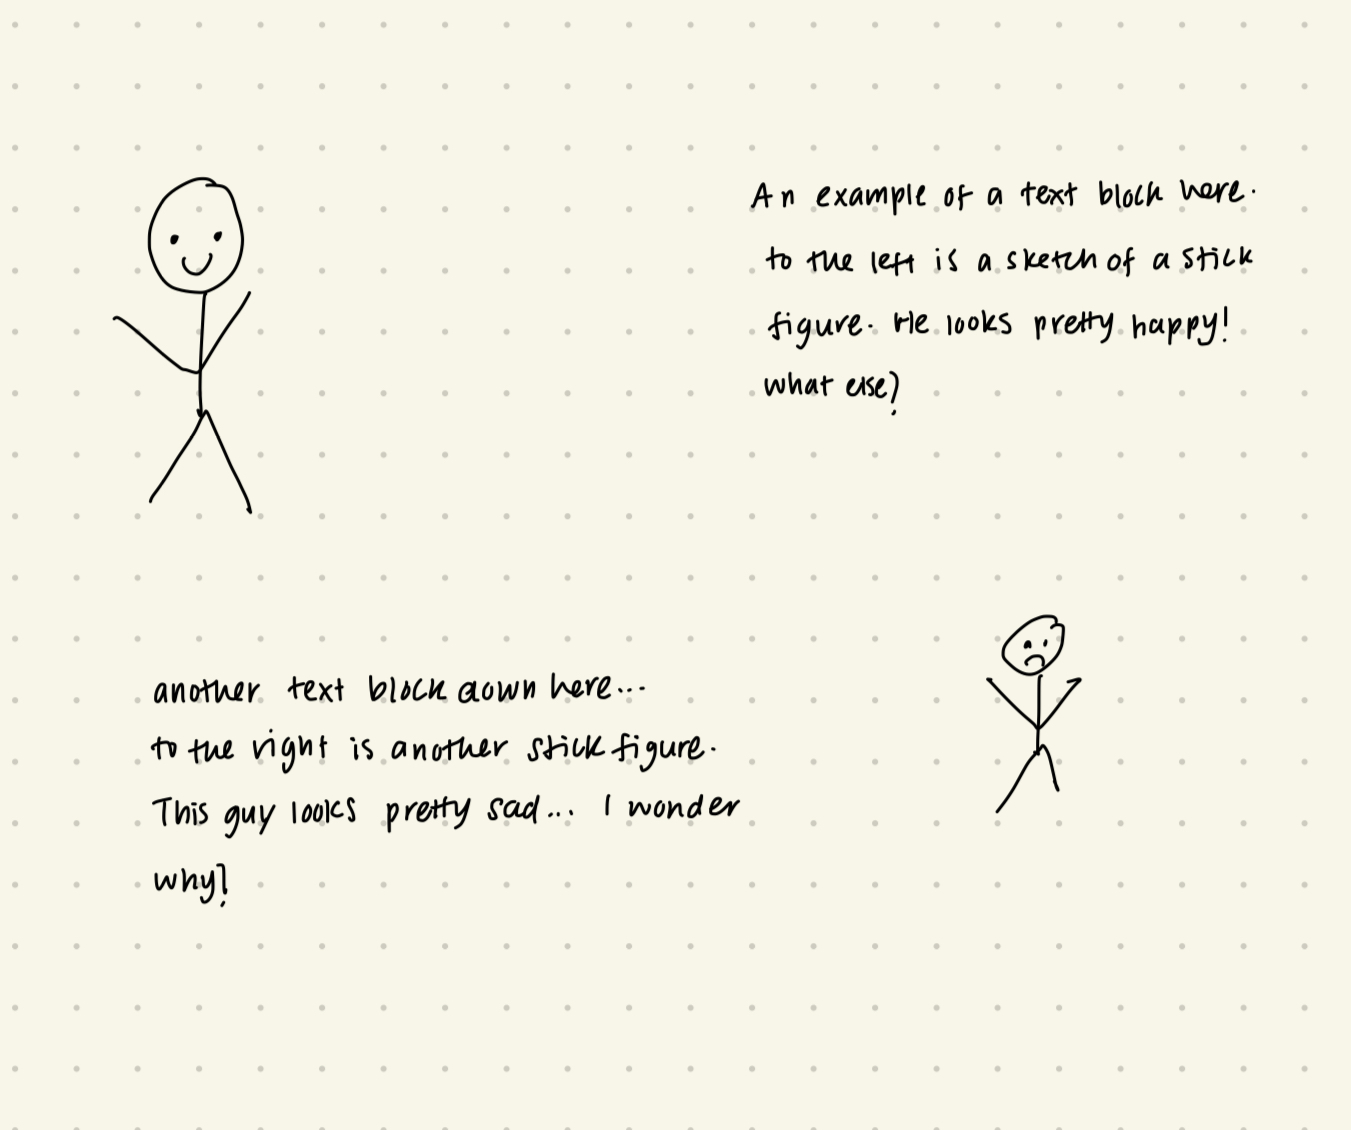 An example of a text block here.
to the left is a sketch of a stick
figure. He looks pretty happy!
what else?
another text block down here...
to the right is another stick figure.
This guy looks pretty sad... I wonder
why?